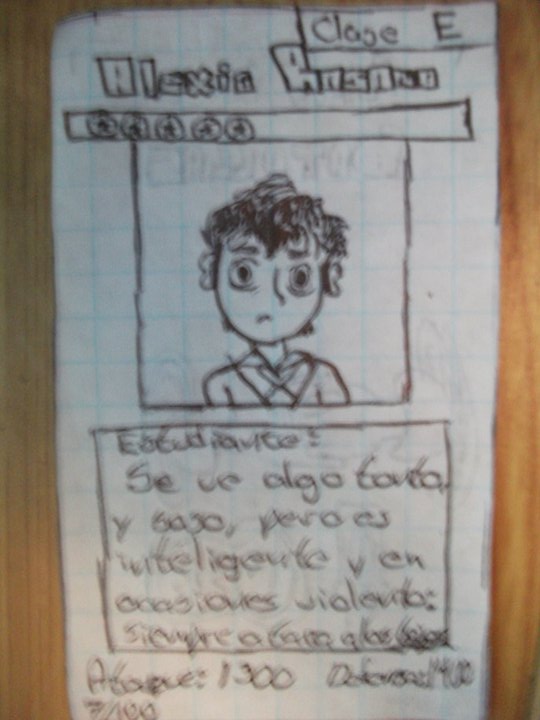 Clase E
Alexia
Estudiante:
Se ve algo tonta,
y sosa, pero es
inteligente y en
ocasiones violenta:
siempre ataca a los
Ataque: 1300 Defensa: 1400
7/100